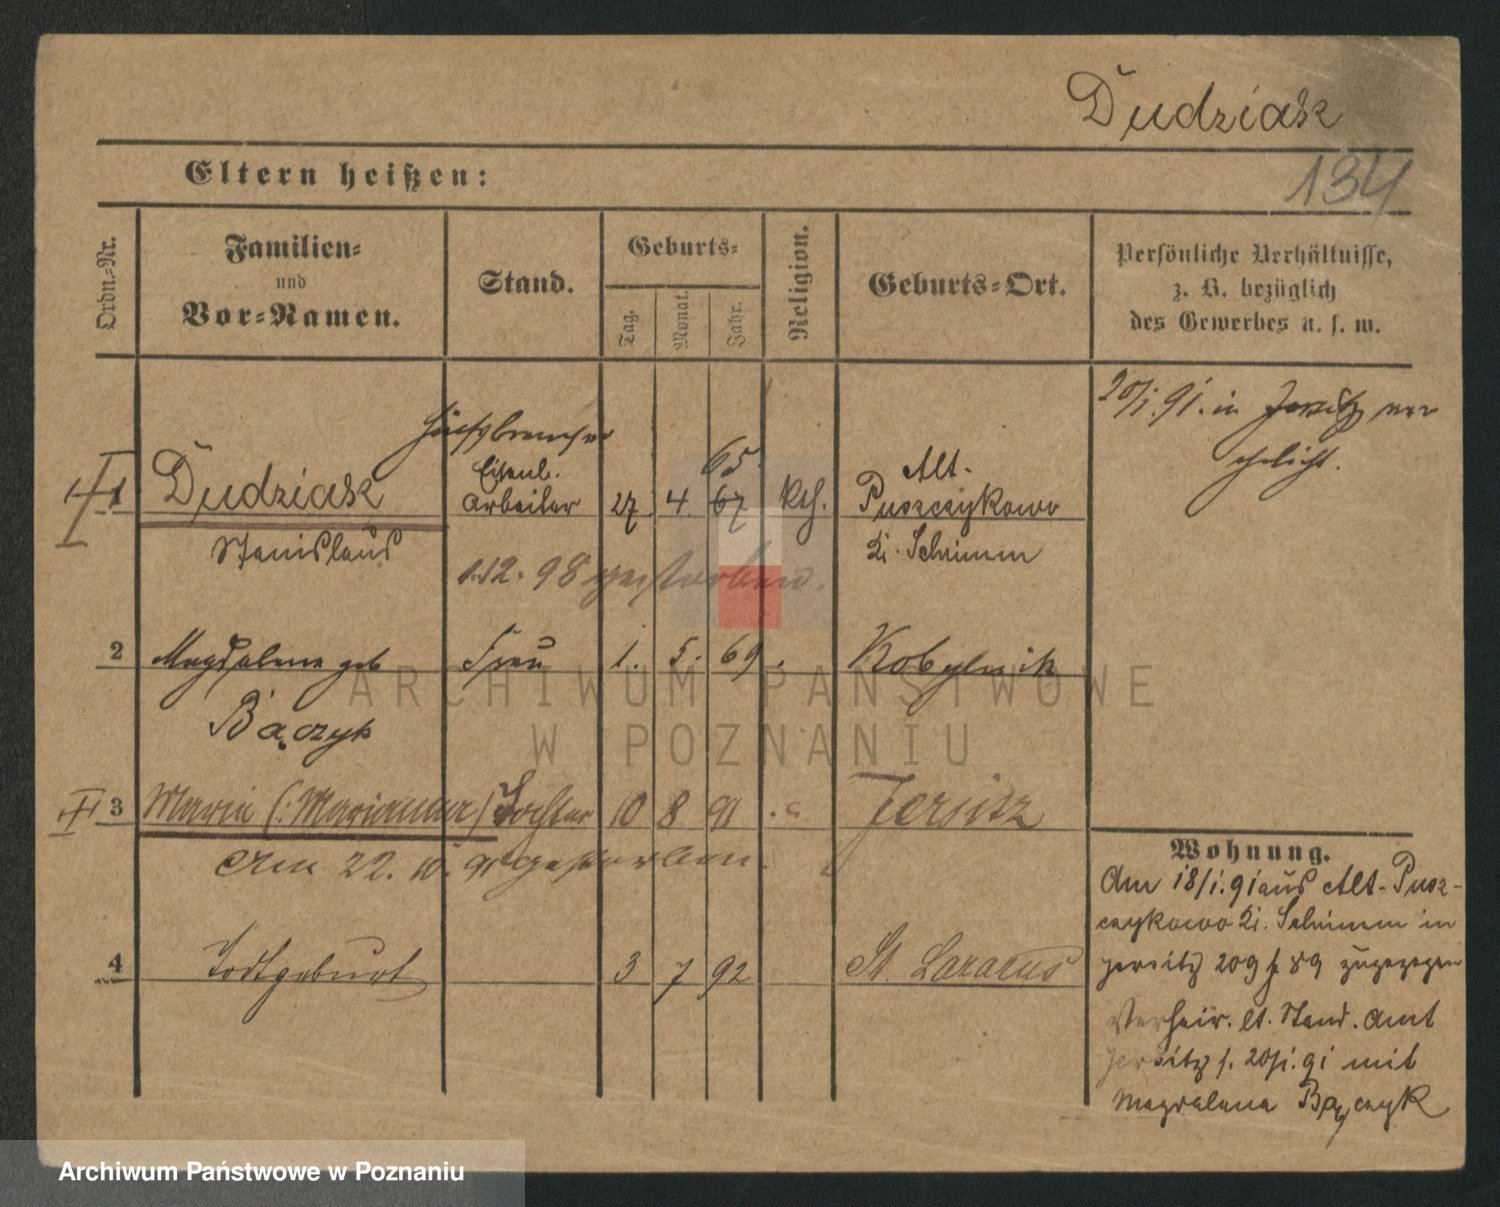 Dudziak
134
Eltern heißen:
Ordn.-Nr.
Familien-
und
Vor-Namen.
Stand.
Geburts-
Tag.
Monat.
Jahr.
Religion.
Geburts-Ort.
Persönliche Verhältnisse,
z. B. bezüglich
des Gewerbes u. s. w.
20/1.91. in Jersitz ver
ehelicht.
Hilfsbremser
1 Dudziak Eisenb. Arbeiter 27 4. 67 65 kth. Alt-
Puszczykowo
Stanislaus
Kr. Schrimm
1.12.98 gestorben.
2 Magdalena geb Frau 1. 5. 69. Kobylnik
Bączyk
3 Maria (: Marianna) Tochter 10 8 91 Jersitz
Am 22. 10. 91 gestorben.
4 Todtgeburt 3 7 92 St. Lazarus
Wohnung.
Am 18/1.91 aus Alt-Pusz-
czykowo Kr. Schrimm in
Jersitz 209 f 89 zugezogen
Verheir. lt. Stand. Amt
Jersitz f. 20/1.91 mit
Magdalena Bączyk
ARCHIWUM PAŃSTWOWE
W POZNANIU
Archiwum Państwowe w Poznaniu